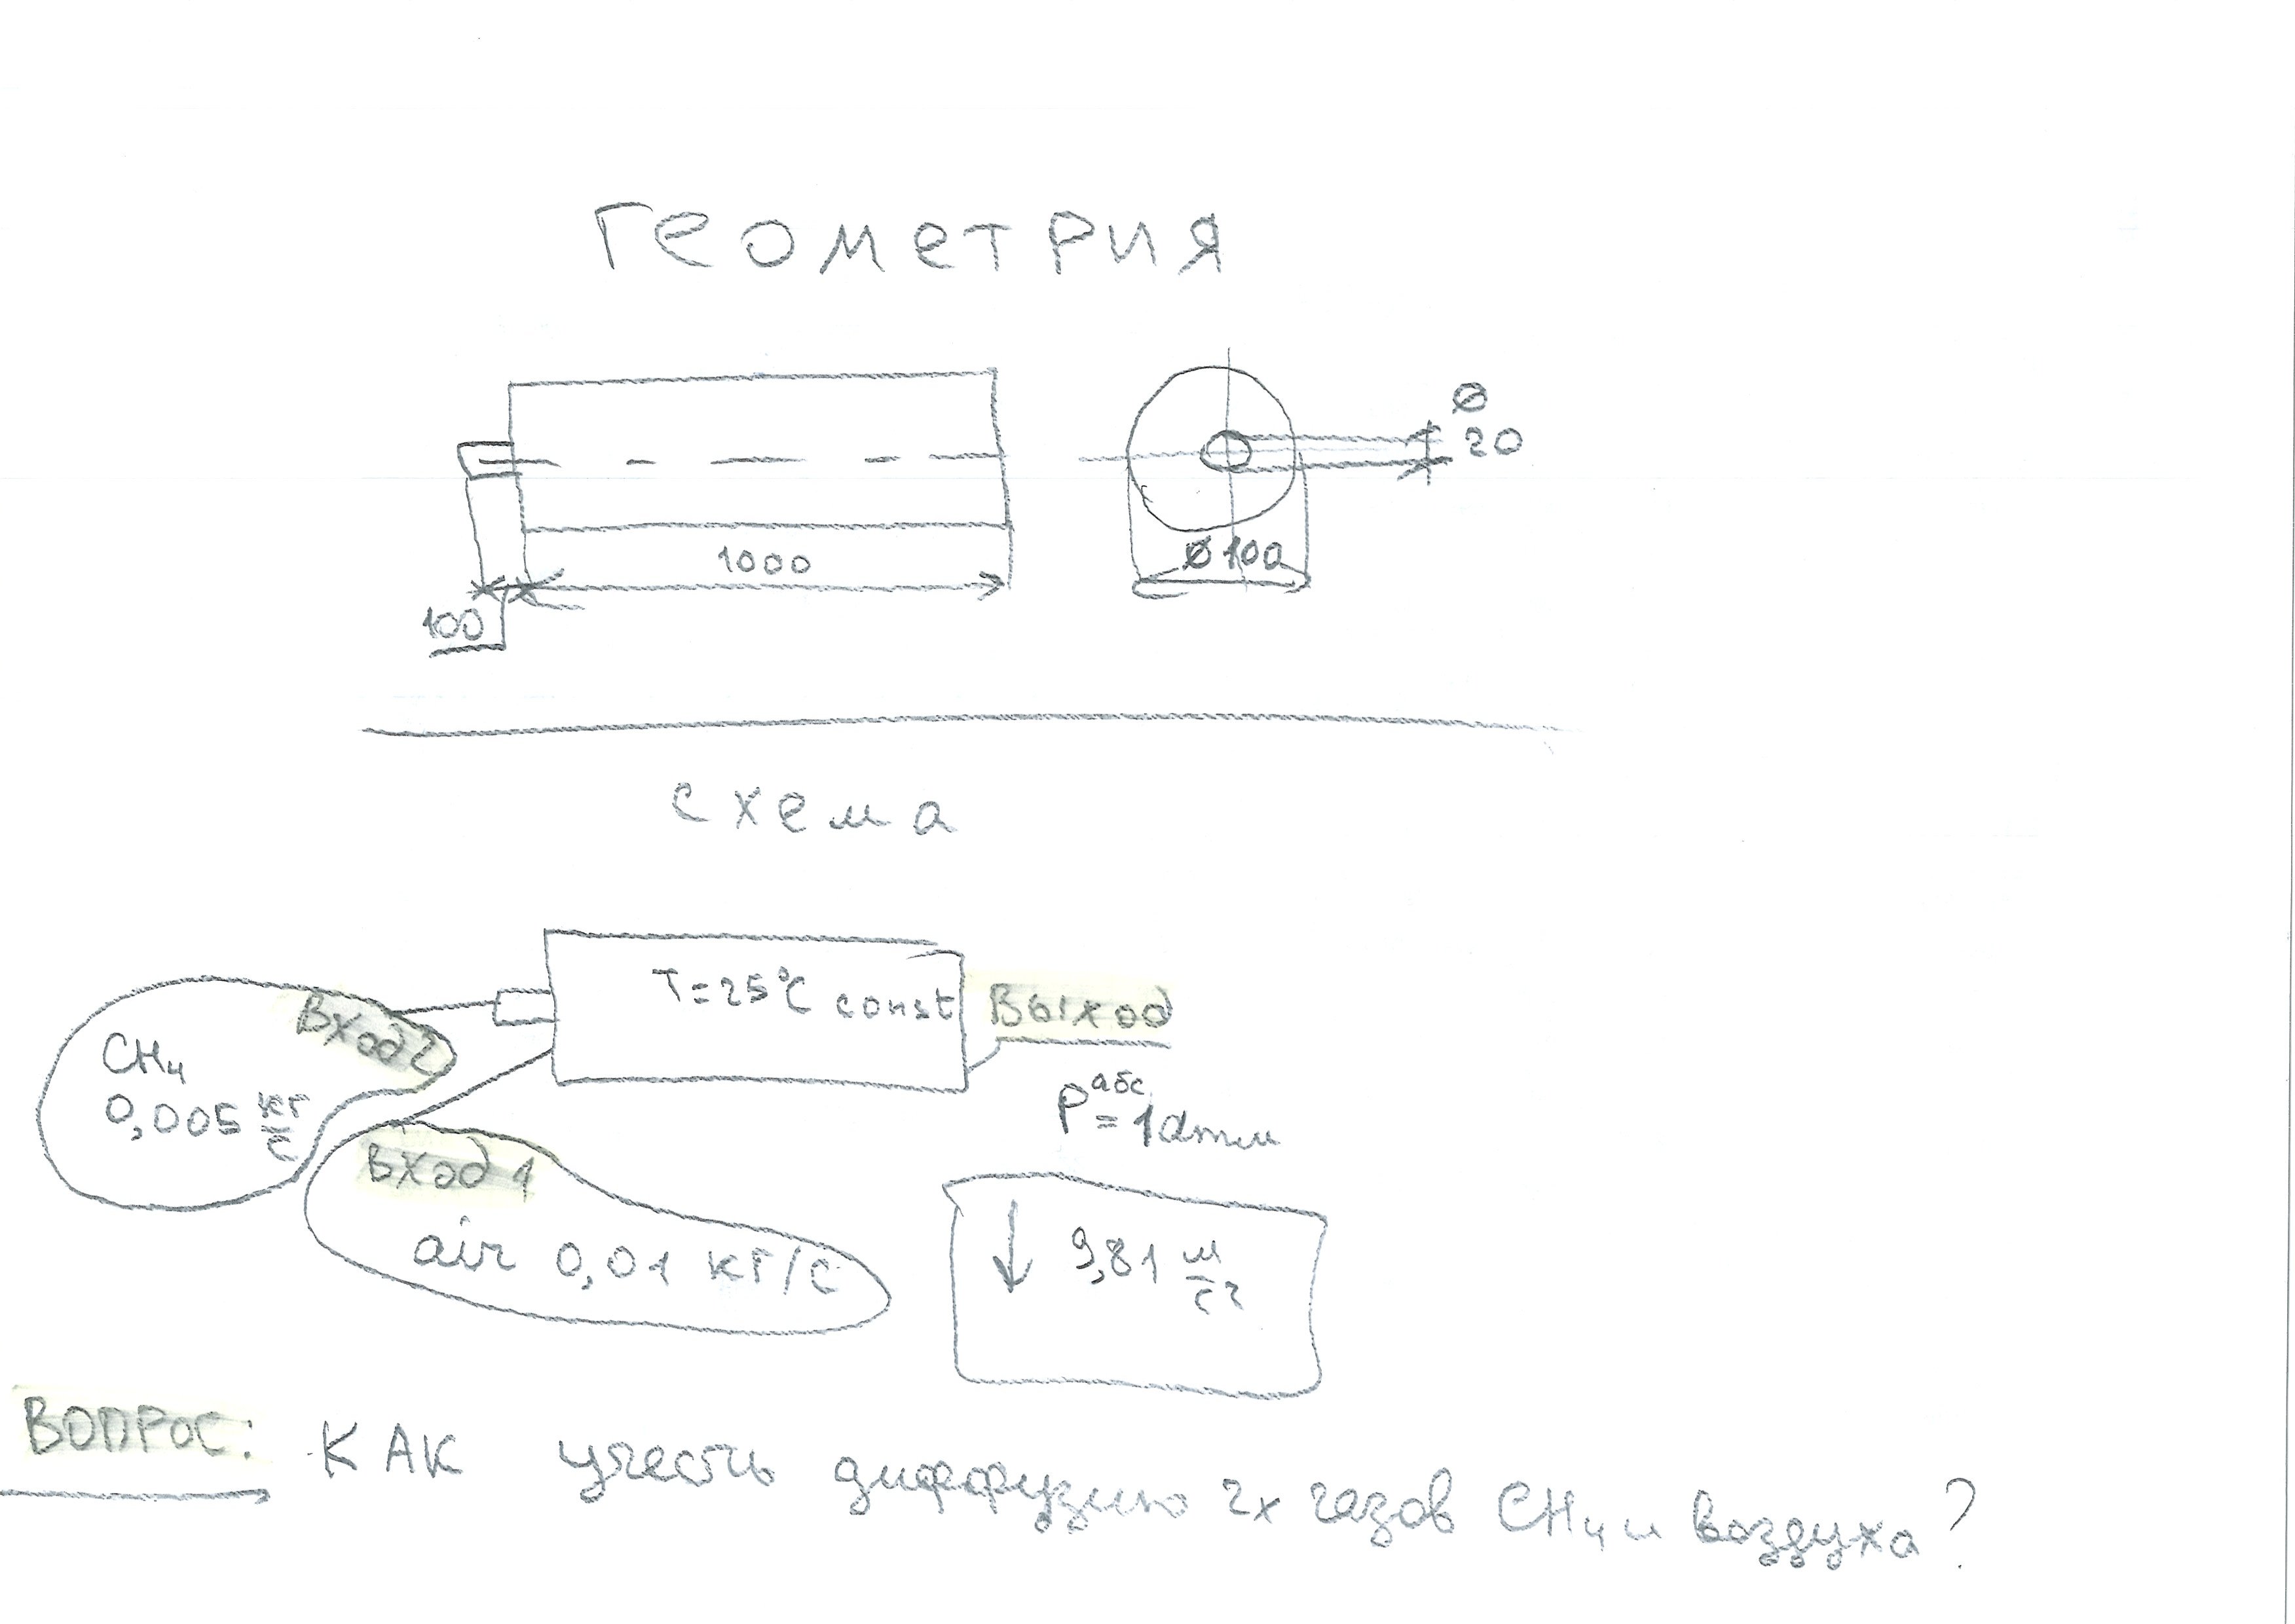 ГЕОМЕТРИЯ
Ø
20
1000
Ø100
100
схема
T=25°C const
Выход
Вход 2
CH4
0,005 кг/с
Pабс = 1 атм
Вход 1
air 0,01 кг/с
9,81 м/с2
ВОПРОС: КАК учесть диффузию 2х газов CH4 и воздуха?